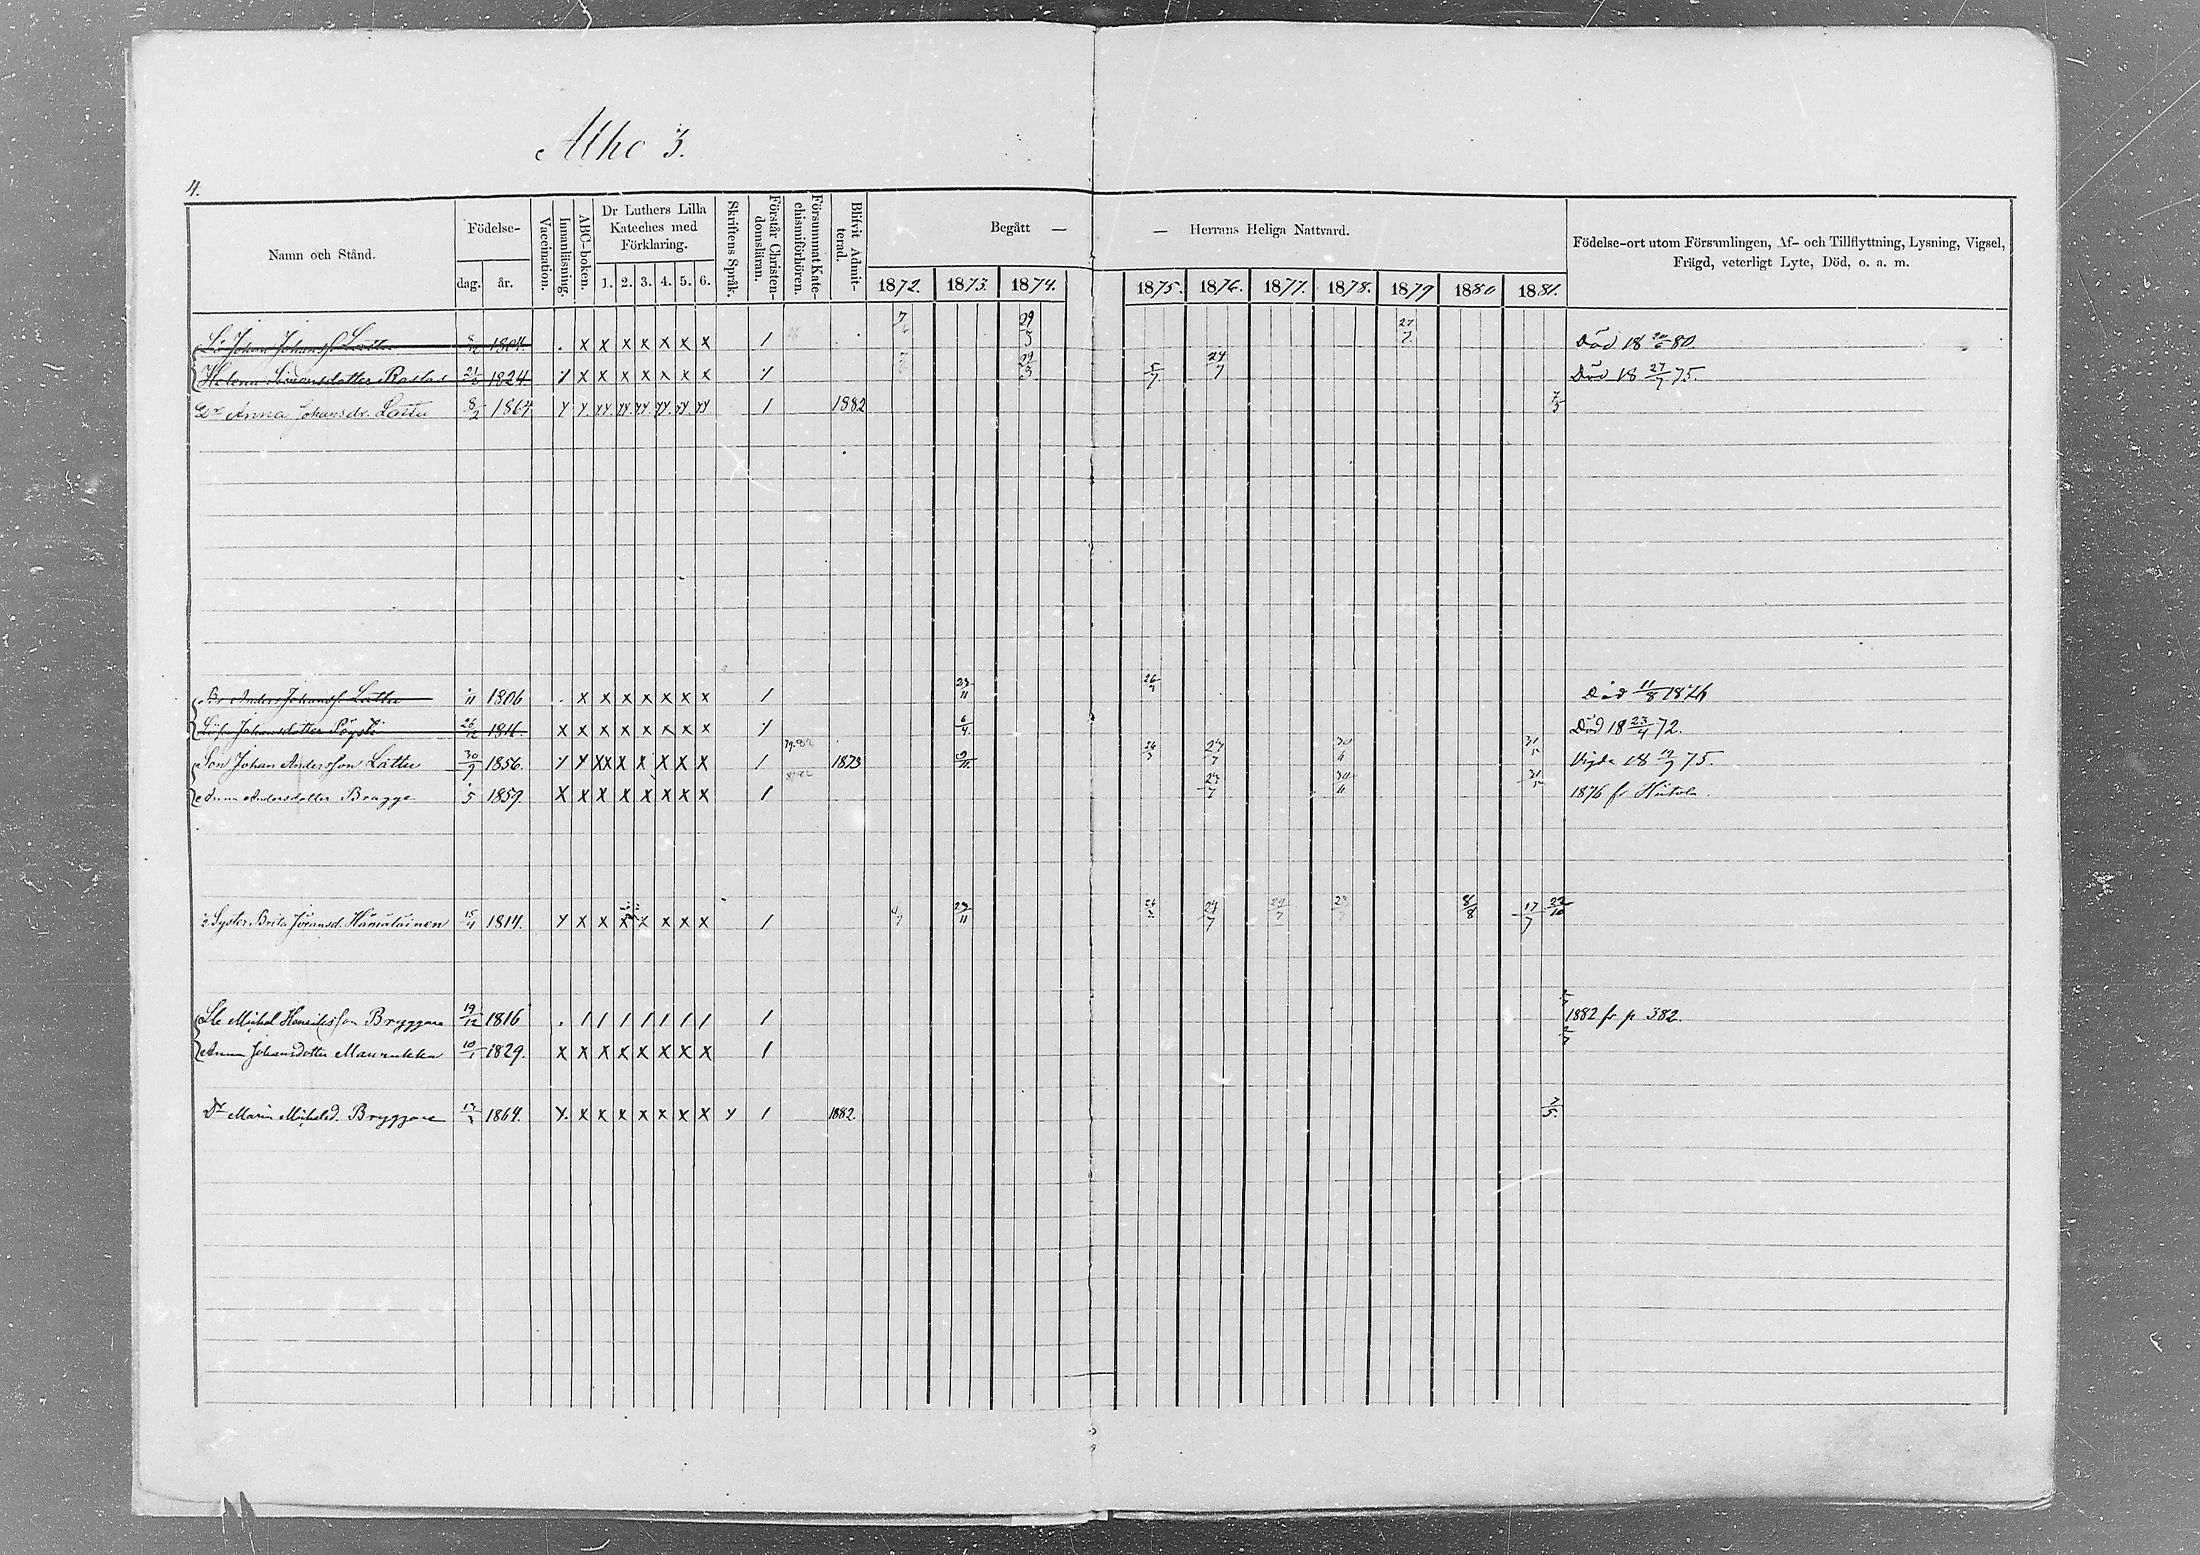 Alho 3.
4.
Namn och Stånd.
Födelse-
dag. år.
Vaccination.
Innanläsning.
ABC-boken.
Dr Luthers Lilla
Kateches med
Förklaring.
1. 2. 3. 4. 5. 6.
Skriftens Språk.
Förstår Christen-
domsläran.
Försummat Kate-
chismiförhören.
Blifvit Admit-
terad.
Begått — — Herrans Heliga Nattvard.
1872. 1873. 1874. 1875. 1876. 1877. 1878. 1879 1880 1881.
Födelse-ort utom Församlingen, Af- och Tillflyttning, Lysning, Vigsel,
Frägd, veterligt Lyte, Död, o. a. m.
Johan Johanss. Lattu 1804. . x x x x x x x / 29/3 27/7 Död 18 80
Helena Simonsdotter 1824. x x x x x x x / 29/3 5/7 24/7 Död 18 27/7 75.
Dr Anna Johansdr. Lattu 8/2 1864 / 1882 7/5
Br Anders Johanss. Lattu 11 1806 . x x x x x x x / 23/11 26/3 Död 11/8 1876
Johansdotter Pöysti 26/12 1816. x x x x x x x x 6/4. Död 18 23/4 72.
Son Johan Andersson Lattu 30/9 1856. xx x x x x x / 1873 24/7 30/11 31/5 Vigda 18 75.
Anna Andersdotter Bragge 5 1859. x x x x x x x x / 24/7 30/11 31/5 1876 fr Hiitola.
Syster Brita Jöransd. Hämäläinen 15/4 1814. x x x x x x x / 23/11 24/7 24/7 8/8 17/7 23/10
Michel Henriksson Bryggare 19/12 1816 . / / / / / / / / 1882 fr p 382.
Anna Johansdotter Maunukka 10/1 1829. x x x x x x x x /
Dr Maria Michelsd. Bryggare 1864. x x x x x x x / 1882. 7/5.